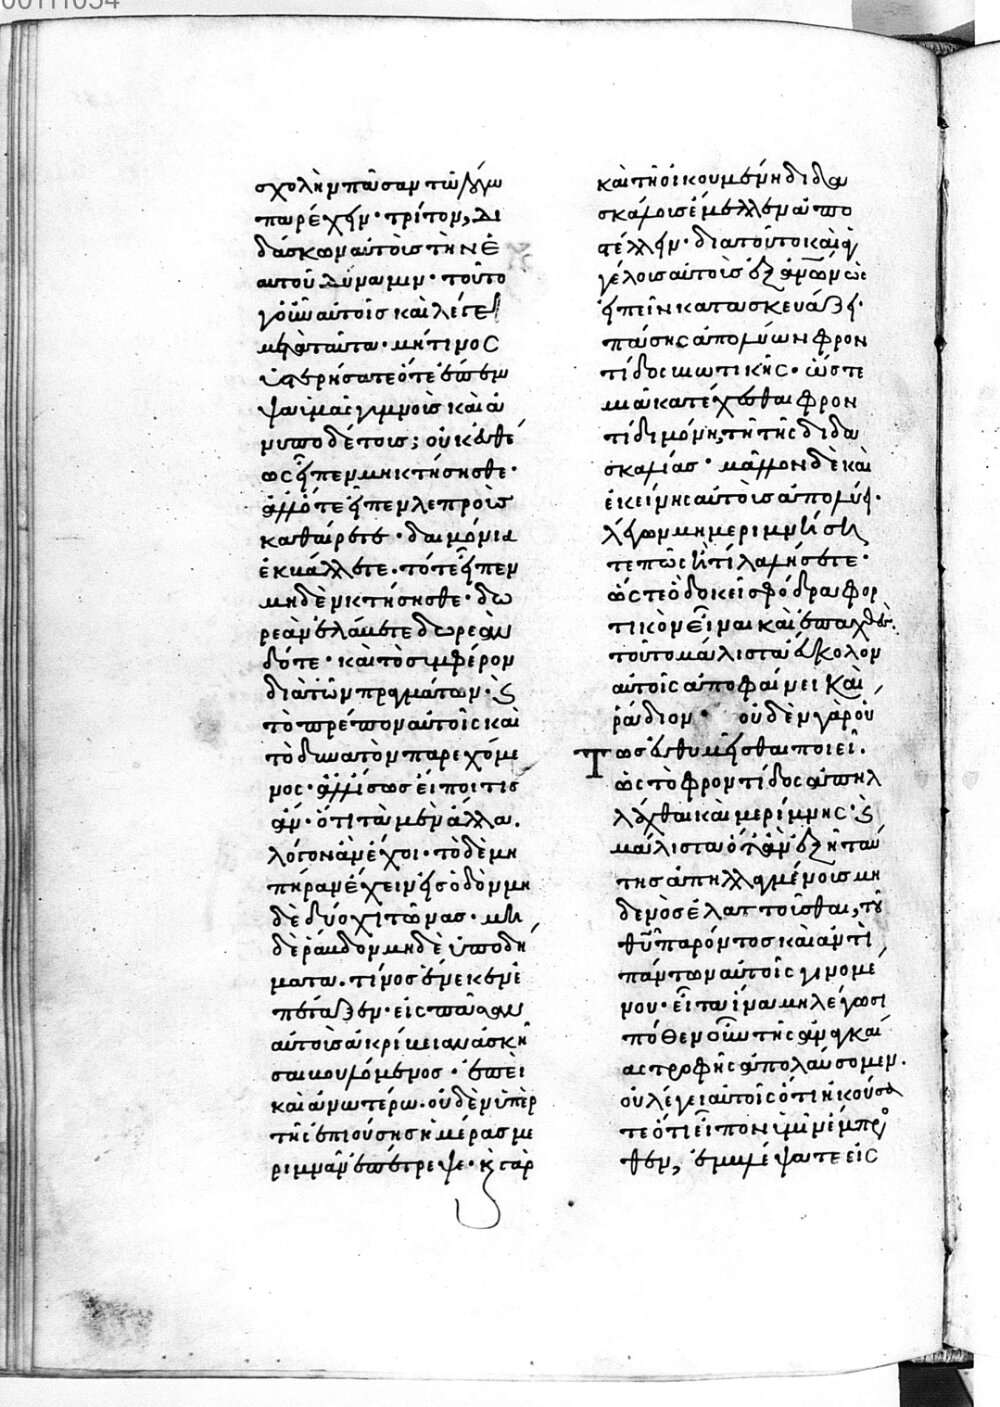 σχολὴν πᾶσαν τῷ λόγω
παρέχειν· τρίτον, δι
δάσκων αὐτοὺς τὴν ἑ
αυτοῦ δύναμιν· τοῦτο
γοῦν αὐτοῖς καὶ λέγει
μετὰ ταῦτα· μή τινος
ὑστερήσατε ὅτε ἔπεμ
ψα ὑμᾶς γυμνοὺς καὶ ἀ
νυποδέτους; οὐκ εὐθέ
ως εἶπεν μὴ κτήσησθε·
ἀλλ ὅτε εἶπεν λεπροὺς
καθαίρετε· δαιμόνια
ἐκβάλλετε· τότε εἶπεν
μηδὲν κτήσησθε· δω
ρεὰν ἐλάβετε δωρεὰν
δότε· καὶ τὸ συμφέρον
διὰ τῶν πραγμάτων· καὶ
τὸ πρέπον αὐτοῖς καὶ
τὸ δυνατὸν παρεχόμε
νος· ἀλλ ἴσως εἴποι τις
ἂν· ὅτι τὰ μὲν ἄλλα·
λόγον ἂν ἔχοι· τὸ δὲ μὴ
πήραν ἔχειν εἰς ὁδὸν μη
δὲ δύο χιτῶνας· μη
δὲ ράβδον μηδὲ ὑποδή
ματα· τίνος ἕνεκεν ἐ
πέταξεν· εἰς πᾶσαν
αὐτοὺς ἀκρίβειαν ἀσκῆ
σαι βουλόμενος· ἐπεὶ
καὶ ἀνωτέρω· οὐδὲν ὑπὲρ
τῆς ἐπιούσης ἡμέρας με
ριμνᾶν ἐπέτρεψε· καὶ γὰρ
καὶ τῇ οἰκουμένη διδα
σκάλους ἔμελλεν ἀπο
στέλλειν· διὰ τοῦτο καὶ ἀγ
γέλους αὐτοὺς ἐξ ἀνων ὡς
εἰπεῖν κατασκευάζει·
πάσης ἀπολύων φρον
τίδος βιωτικῆς· ὥστε
μιᾶ κατέχεσθαι φρον
τίδι μόνη, τῆ τῆς διδα
σκαλίας· μᾶλλον δὲ καὶ
ἐκείνης αὐτοὺς ἀπολύει·
λέγων μὴ μεριμνήση
τε πῶς ἢ τί λαλήσετε·
ὥστε ὃ δοκεῖ σφόδρα φορ
τικὸν εἶναι καὶ ἐπαχθὲς·
τοῦτο μάλιστα εὔκολον
αὐτοῖς ἀποφαίνει καὶ
ράδιον· οὐδὲν γὰρ οὕ
τως εὐθυμεῖσθαι ποιεῖ·
ὡς τὸ φροντίδος ἀπηλ
λάχθαι καὶ μερίμνης· καὶ
μάλιστα ὅταν ἐξῆ ταύ
της ἀπηλλαγμένοις μη
δενὸς ἐλαττοῦσθαι, τοῦ
θυ παρόντος καὶ ἀντὶ
πάντων αὐτοῖς γινομέ
νου· εἶτα ἵνα μὴ λέγωσι
πόθεν οὖν τῆς ἀναγκαί
ας τροφῆς ἀπολαύσομεν·
οὐ λέγει αὐτοῖς ὅτι ἠκούσα
τε ὅτι εἶπον ὑμῖν ἔμπρο
σθεν, ἐμβλέψατε εἰς